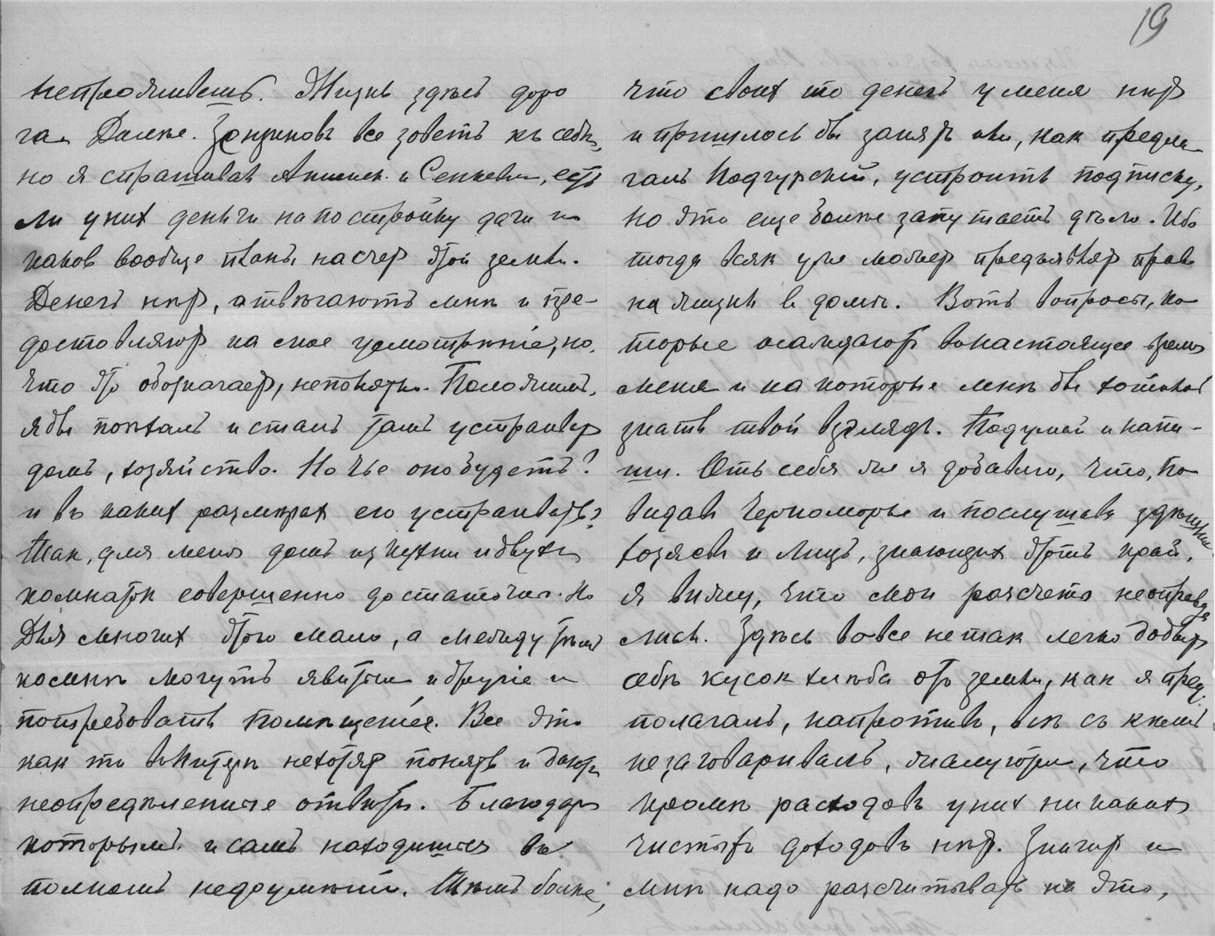 непроживешь. Жизнь здѣсь доро
га. Далѣе. все зоветъ къ себѣ,
но я спрашивал и Сенкевич, есть
ли у них деньги на постройку дачи и
каков вообще планъ насчет этой земли.
Денегъ нѣт, отвѣчаютъ мнѣ и пре-
доставляют на мое усмотрѣніе, но,
что это обозначает, непонять. Положимъ,
я бы поѣхалъ и сталъ там устраивать
домъ, хозяйство. Но чье оно будетъ?
и въ каких размѣрах его устраивать?
Так, для меня домъ из кухни и двухъ
комнаток совершенно достаточно. Но
Для многих этого мало, а между тѣмъ
ко мнѣ могутъ явиться и другіе и
потребовать помѣщенія. Все это
как то въ Питерѣ нехотят понять и дают
неопредѣленные отвѣты. Благодаря
которымъ и самъ находишься въ
полномъ недоумѣніи. Тѣмъ болѣе,
19
что своих то денегъ у меня нѣт
и пришлось бы занять или, как предла
галъ Подгурскій, устроить подписку,
но это еще болѣе запутаетъ дѣло. Ибо
тогда всяк уже может предъявлят право
на жизнь в домѣ. Вотъ вопросы, ко
торые осаждают в настоящее время
меня и на которые мнѣ бы хотѣлось
знать твой взглядъ. Подумай и напи-
ши. Отъ себя же я добавлю, что, по
видав Черноморье и послушавъ здѣшних
хозяевъ и лицъ, знающих этотъ край,
я вижу, что мои расчеты неоправда
лись. Здѣсь вовсе не так легко добыть
себѣ кусок хлѣба отъ земли, как я пред-
полагалъ, напротив, всѣ съ кѣмъ
не заговаривалъ, жалуются, что
кромѣ расходовъ у них никаких
чистых доходовъ нѣт. Значит и
мнѣ надо разсчитывать на это,